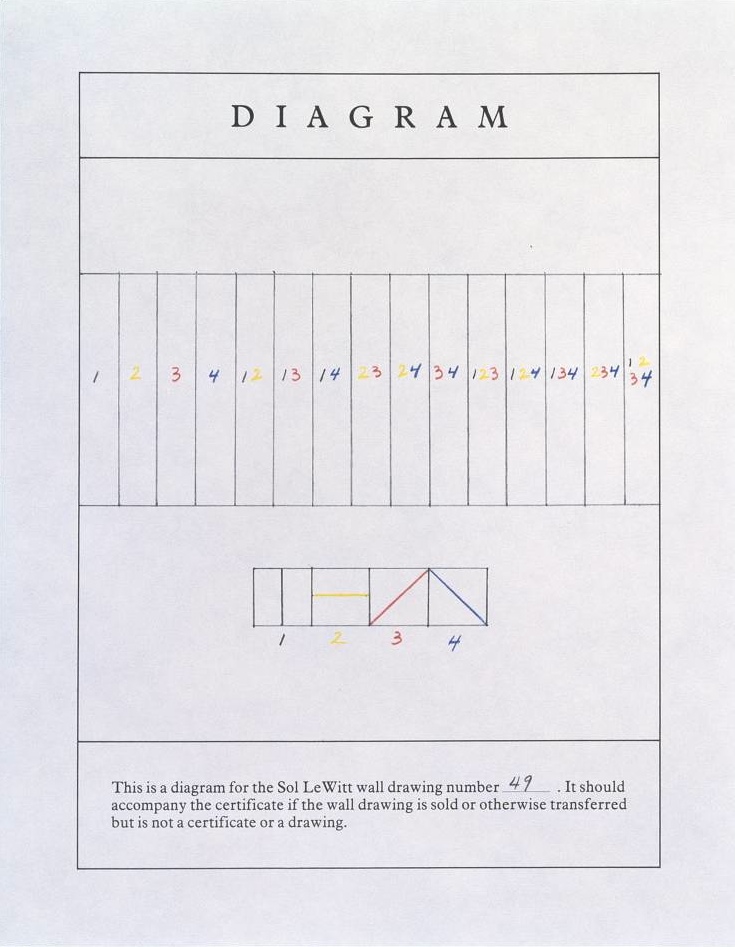 DIAGRAM
1 2 3 4 12 13 14 23 24 34 123 124 134 234 12
34
1 2 3 4
This is a diagram for the Sol LeWitt wall drawing number 49 . It should
accompany the certificate if the wall drawing is sold or otherwise transferred
but is not a certificate or a drawing.